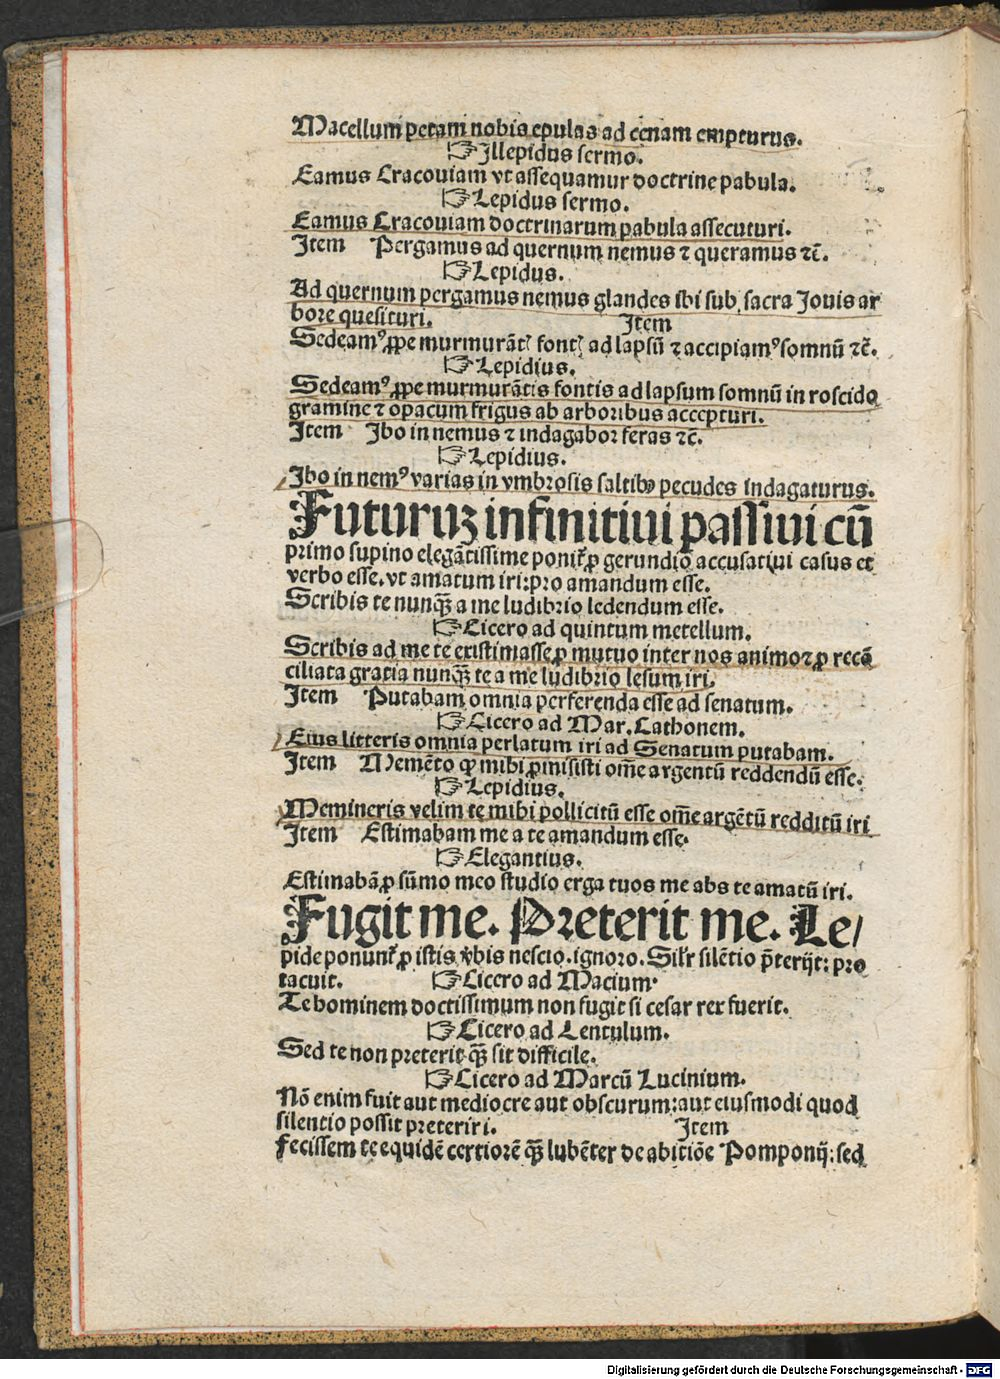 Macellum petam nobis epulas ad cenam empturus.
☞Illepidus sermo.
Eamus Cracouiam vt assequamur doctrine pabula.
☞Lepidus sermo.
Eamus Cracouiam doctrinarum pabula assecuturi.
Item Pergamus ad quernum nemus ⁊ queramus ⁊c̄.
☞Lepidus.
Ad quernum pergamus nemus glandes sbi sub sacra Jouis ar
bore quesituri. Item
Sedeamꝰ ꝓpe murmurāt font ad lapsū ⁊ accipiamꝰ somnū ⁊c̄.
☞Lepidius.
Sedeamꝰ ꝓpe murmurātis fontis ad lapsum somnū in roscido
gramine ⁊ opacum frigus ab arboribus accepturi.
Item Ibo in nemus ⁊ indagabor feras ⁊c̄.
☞Lepidius.
Ibo in nemꝰ varias in vmbrosis saltibꝰ pecudes indagaturus.
Futuruz infinitiui passiui cū
primo supino elegātissime ponit̄ ꝓ gerundio accusatiui casus et
verbo esse. vt amatum iri: pro amandum esse.
Scribis te nunqȝ a me ludibrio ledendum esse.
☞Cicero ad quintum metellum.
Scribis ad me te existimasse ꝓ mutuo inter nos animo ⁊ ꝓ recō
ciliata gratia nunqȝ te a me ludibrio lesum iri.
Item Putabam omnia perferenda esse ad senatum.
☞Cicero ad Mar. Cathonem.
Eius litteris omnia perlatum iri ad Senatum putabam.
Item Memēto ꝙ mihi ꝓmisisti om̄e argentū reddendū esse.
☞Lepidius.
Memineris velim te mihi pollicitū esse om̄e argētū redditū iri
Item Estimabam me a te amandum esse.
☞Elegantius.
Estimabā ꝓ sūmo meo studio erga tuos me abs te amatū iri.
Fugit me. Preterit me. Le/
pide ponunt̄ ꝓ istis v̄bis nescio. ignoro. Silr̄ silētio p̄terijt: pro
tacuit. ☞Cicero ad Macium.
Te hominem doctissimum non fugit si cesar rex fuerit.
☞Cicero ad Lentulum.
Sed te non preterit qȝ sit difficile.
☞Cicero ad Marcū Lucinium.
Nō enim fuit aut mediocre aut obscurum: aut eiusmodi quod
silentio possit preteriri. Item
Fecissem te equidē certiorē qȝ lubēter de abitiōe Pomponij: sed
Digitalisierung gefördert durch die Deutsche Forschungsgemeinschaft - DFG